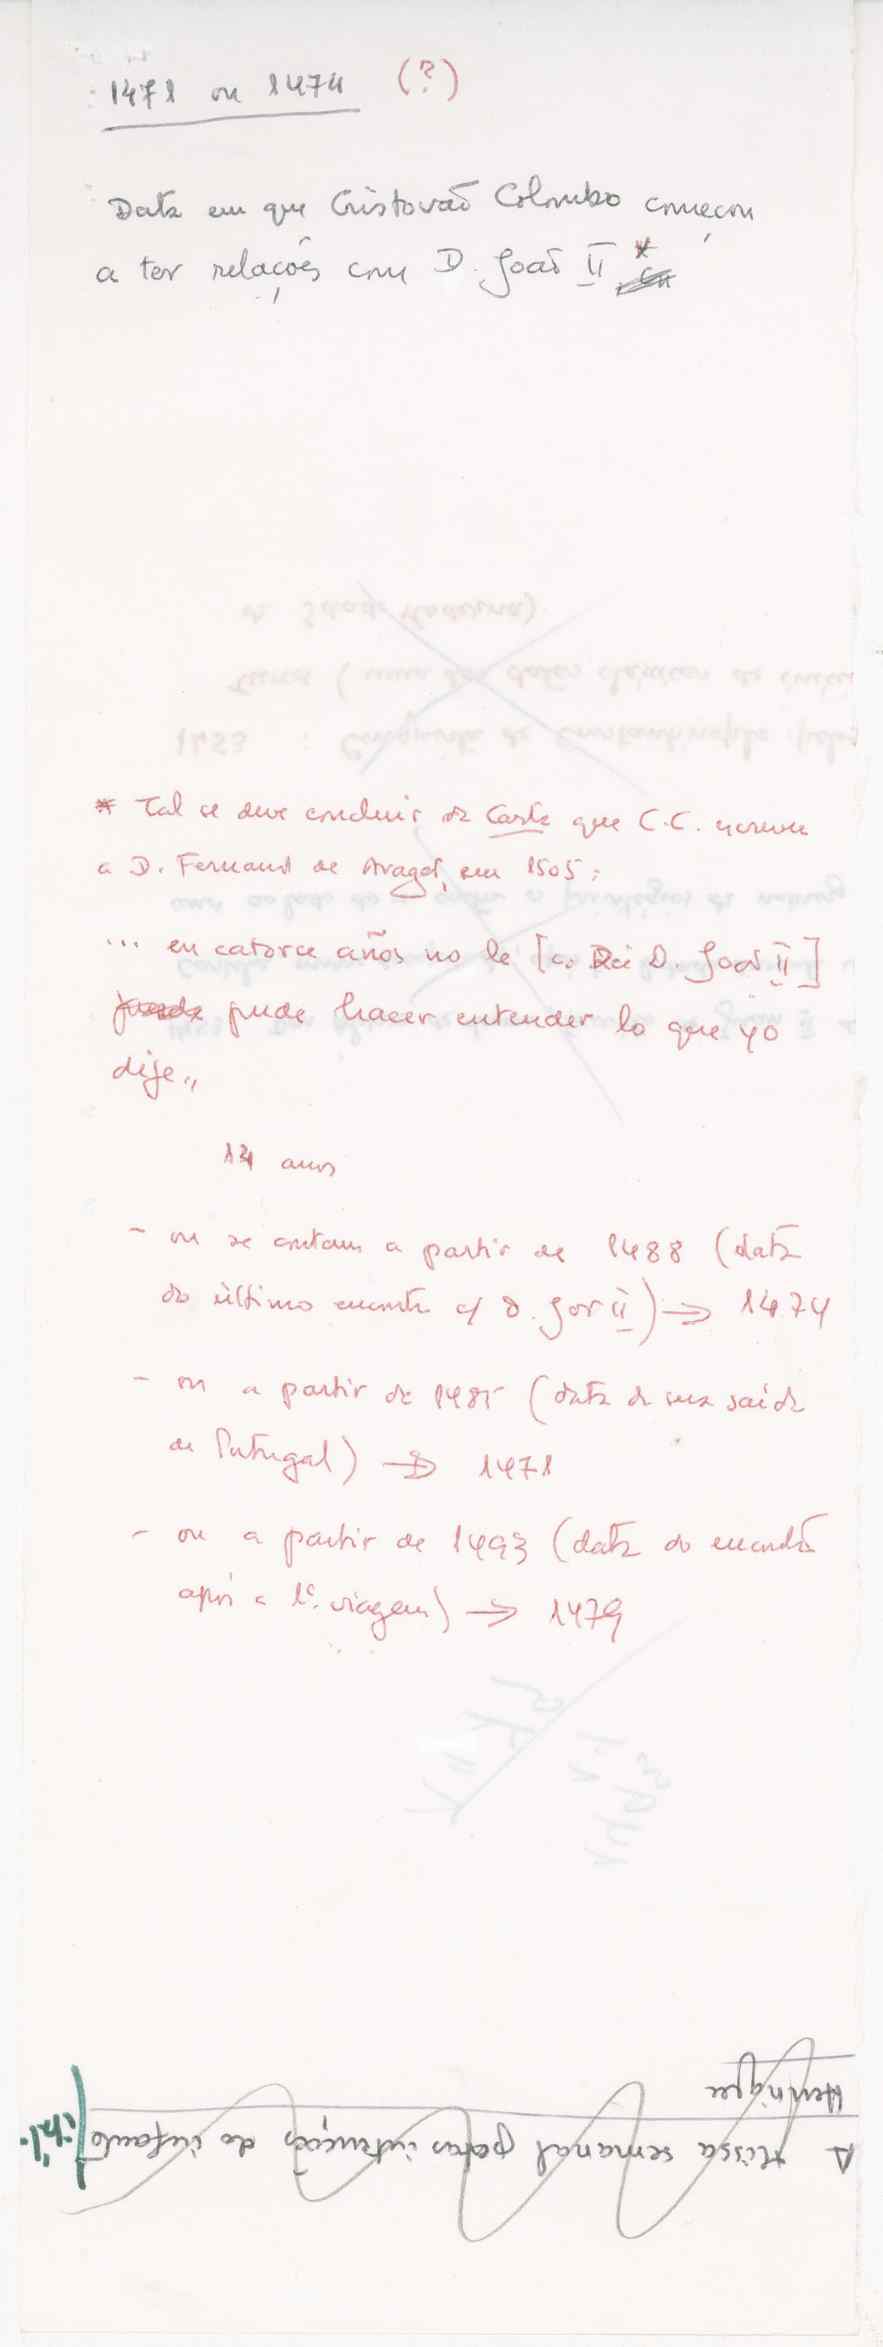 1471 ou 1474 (?)
Data em que Cristovão Colombo começou
a ter relações com D. João II *
* Tal se deve concluir da Carta que C.C. escreveu
a D. Fernando de Aragão, em 1505:
... en catorce años no le [ao Rei D. João II]
pude hacer entender lo que yo
dije„
14 anos
- ou se contam a partir de 1488 (data
do último encontro c/ D. João II) → 1474
- ou a partir de 1485 (data da sua saída
de Portugal) → 1471
- ou a partir de 1493 (data do encontro
após a 1ª. viagem) → 1479
A Missa semanal pelas intenções do infante
Henrique